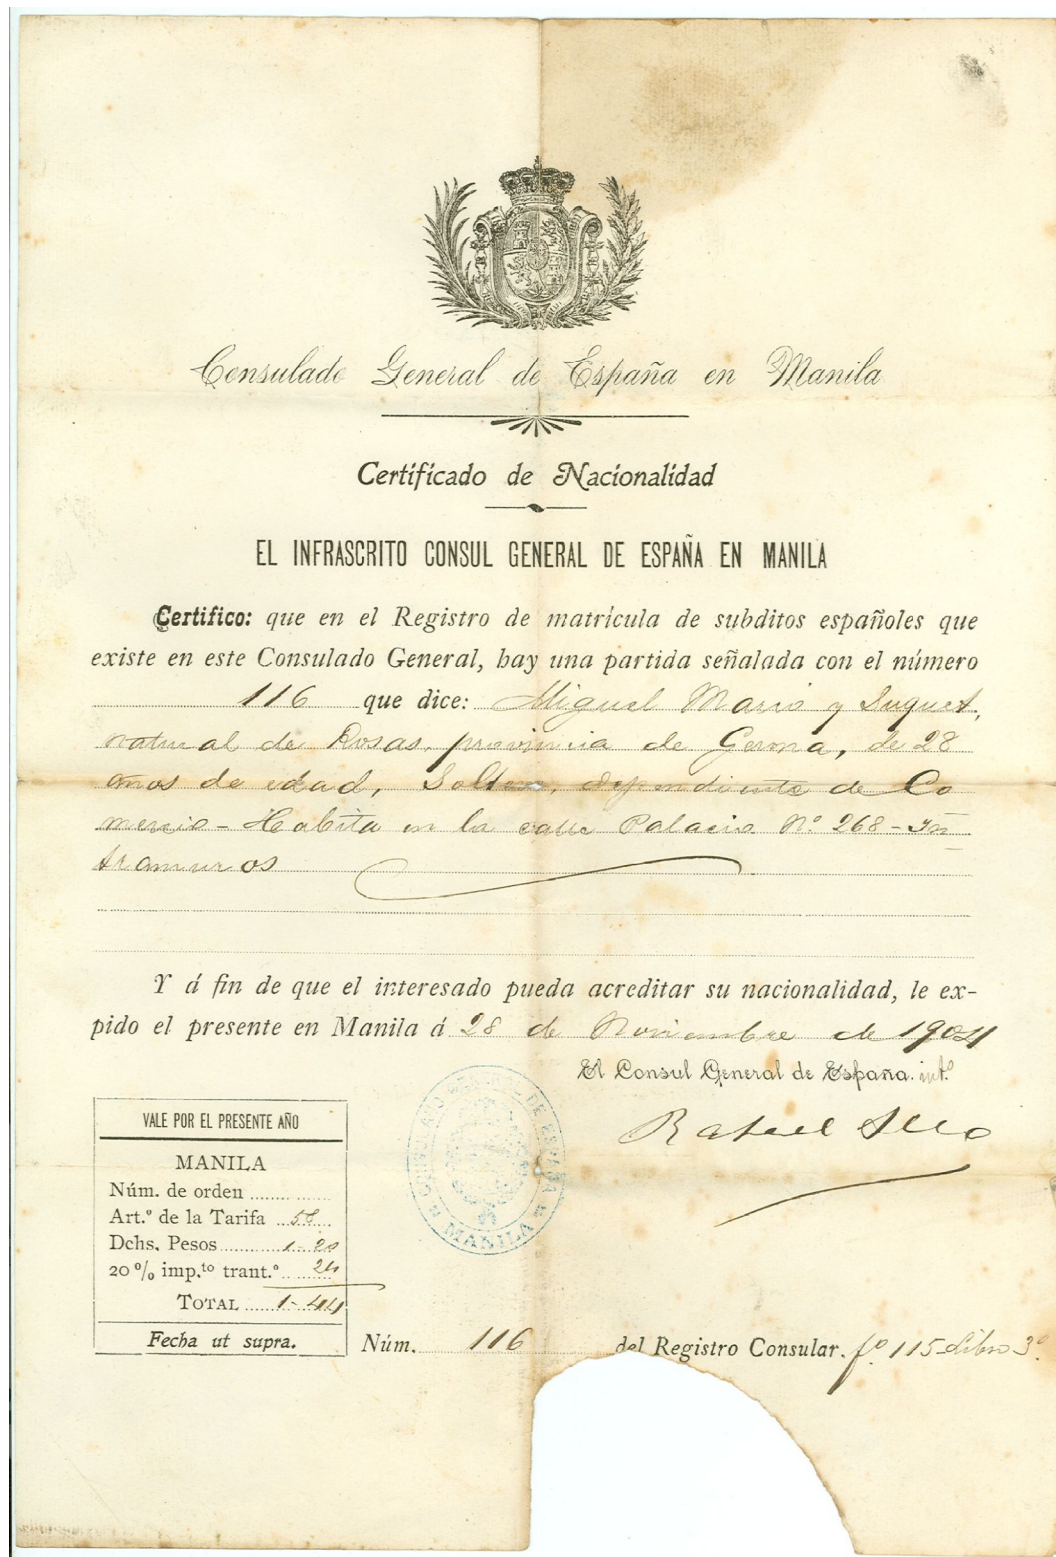 Consulado General de España en Manila
Certificado de Nacionalidad
EL INFRASCRITO CONSUL GENERAL DE ESPAÑA EN MANILA
Certifico: que en el Registro de matrícula de subditos españoles que
existe en este Consulado General, hay una partida señalada con el número
116 que dice: Miguel Mario y Suquet,
natural de Rosas, provincia de Gerona, de 28
años de edad, Soltero, dependiente de Co
mercio - Habita en la calle Palacio Nº 268 - In
tramuros
Y á fin de que el interesado pueda acreditar su nacionalidad, le ex-
pido el presente en Manila á 28 de Noviembre de 1904
El Consul General de España. intº
Rafael
CONSULADO GENERAL DE ESPAÑA
MANILA
VALE POR EL PRESENTE AÑO
MANILA
Núm. de orden
Art.º de la Tarifa 58
Dchs. Pesos 1-20
20 % imp.to trant.º 24
TOTAL 1-44
Fecha ut supra.
Núm. 116 del Registro Consular. fº 115 - Libro 3º.